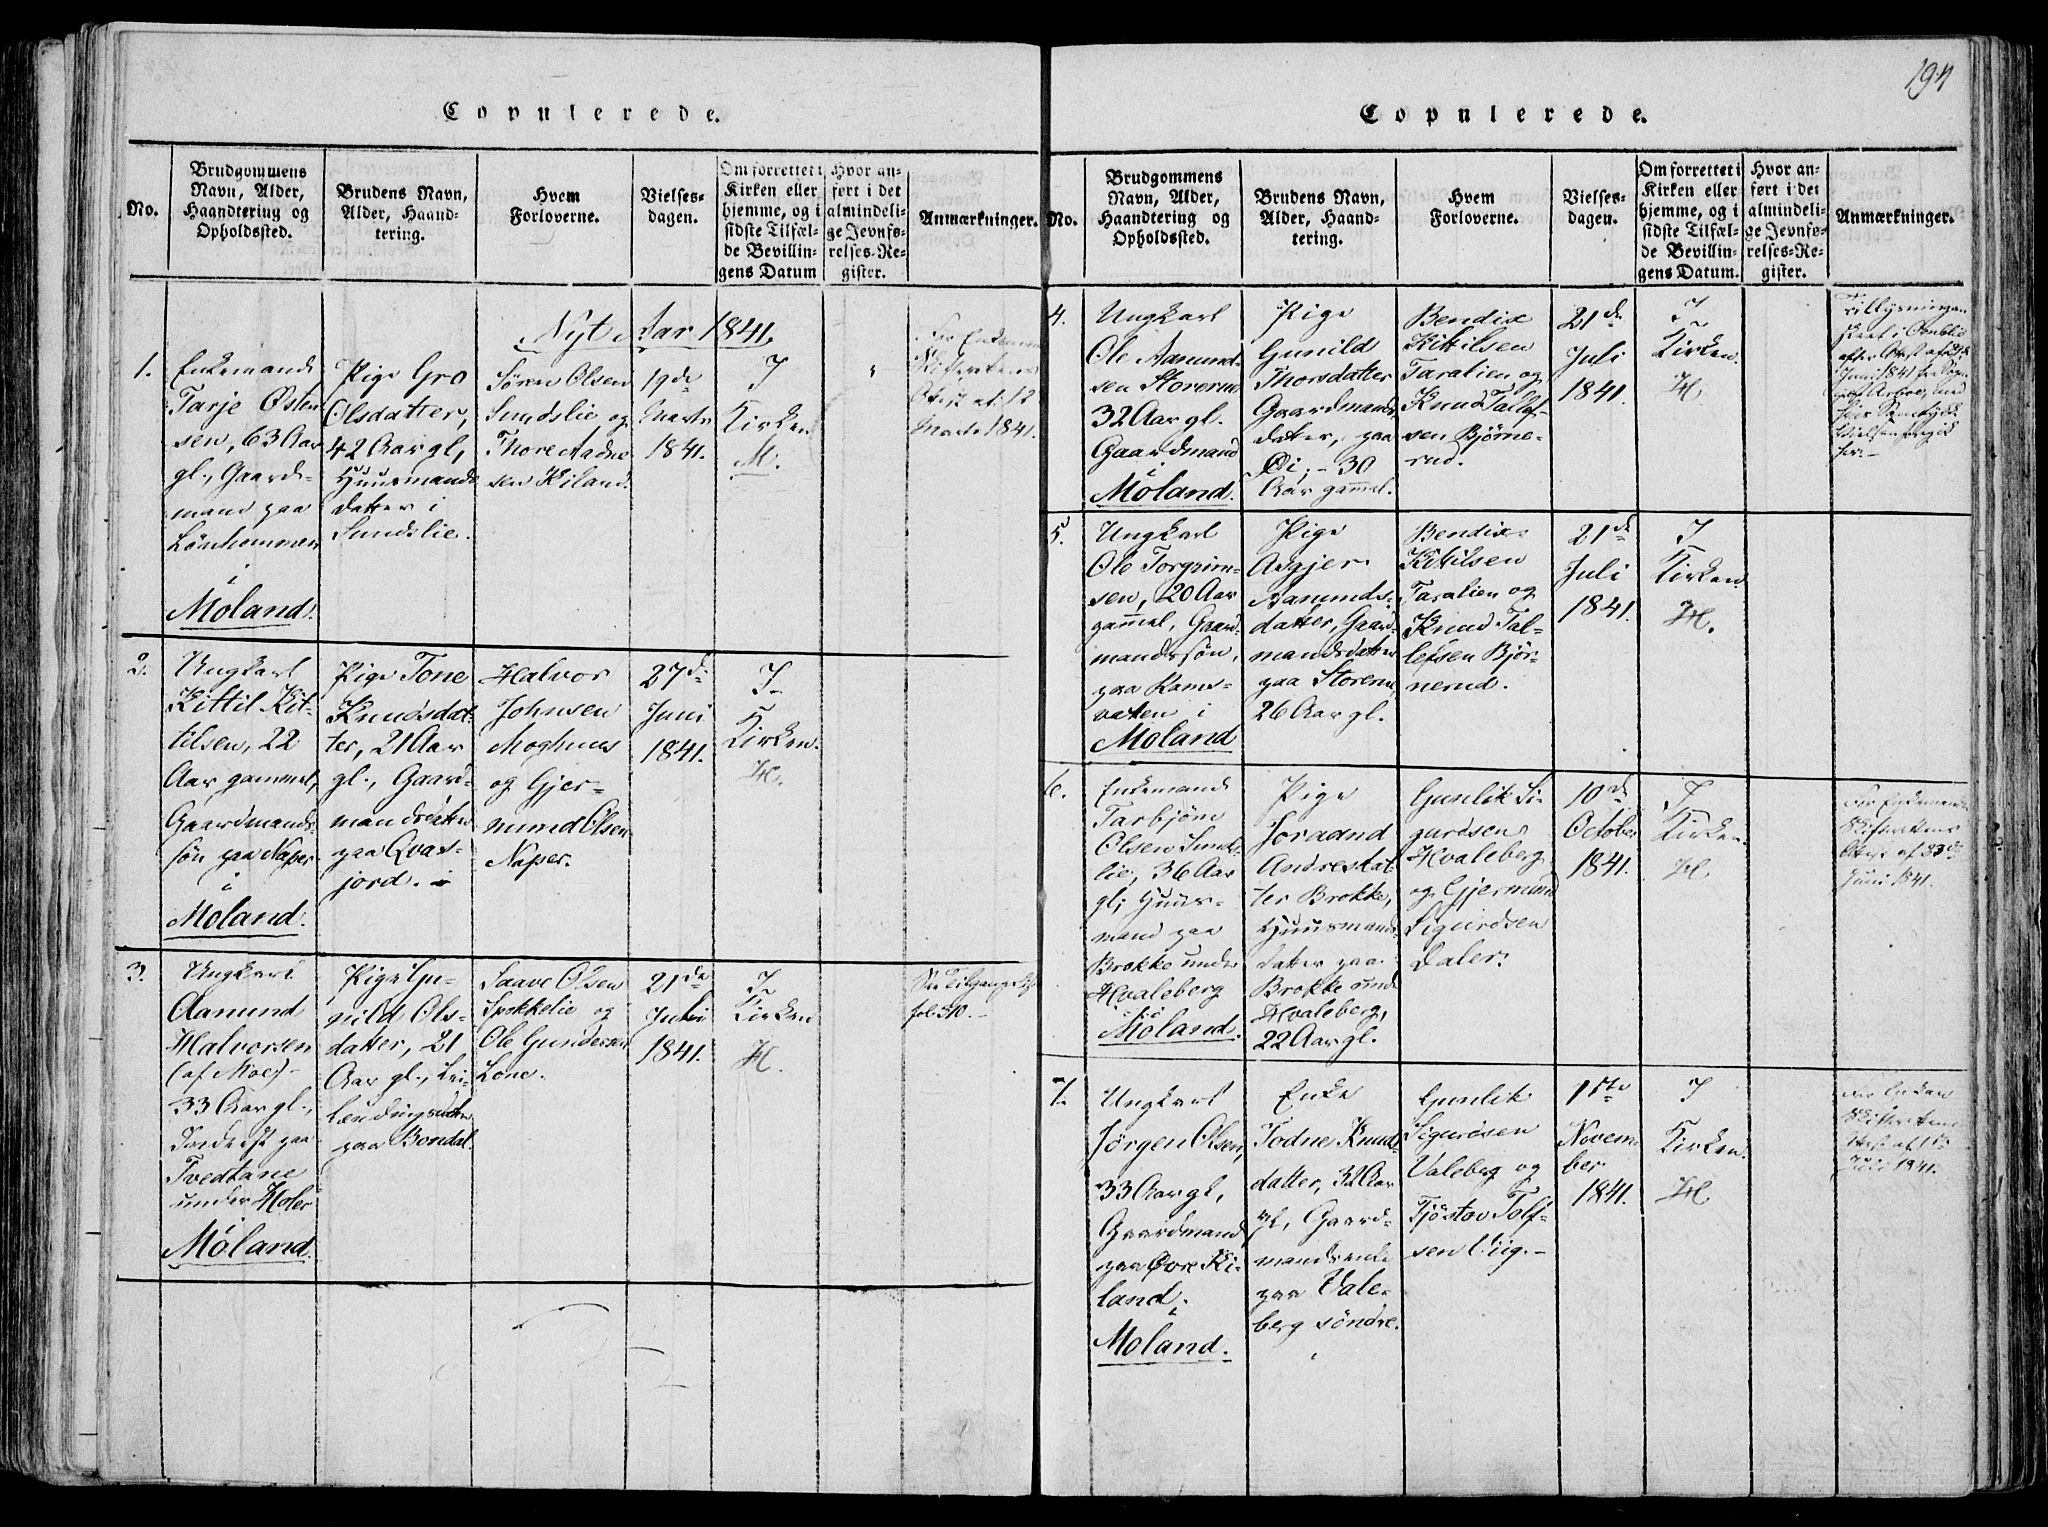 194
Copulerede.
No.
Brudgommens
Navn, Alder,
Haandtering og
Opholdssted.
Brudens Navn,
Alder, Haand-
tering.
Hvem
Forloverne.
Vielses-
dagen.
Om forrettet i
Kirken eller
hjemme, og i
sidste Tilfæl-
de Bevillin-
gens Datum
Hvor an-
ført i det
almindeli-
ge Jevnfø-
relses-Re-
gister.
Anmærkninger.
Nyt Aar 1841.
1.
Enkemand
Tarje Østen
sen, 63 Aar
gl., Gaard-
mand paa
i
Moland.
Pige Gro
Olsdatter,
42 Aar gl,
Huusmands
datter i
Sundslie.
Søren Olsen
Sundslie og
Thore Aadne
sen Kiland.
19de
Marts
1841.
I
Kirken
M.
For Enkemand
Skifterettens
Attest af 12
Marts 1841.
2.
Ungkarl
Kittil Kit-
tilsen, 22
Aar gammel,
Gaardmands-
søn paa Naper
i
Moland.
Pige Tone
Knudsdat-
ter, 21 Aar
gl., Gaard-
mandsdatter
paa Qvas-
jord.
Halvor
Johnsen
Moghuus
og Gjer-
mund Olsen
Naper.
27de
Juni
1841.
I
Kirken.
H.
3.
Ungkarl
Aamund
Halvorsen
(af Moe)-
33 Aar gl.,
Inderst paa
Tvedtane
under Holer
i
Moland.
Pige Gu-
nild Ols-
datter, 21
Aar gl., Lei-
lændingsdatter
paa Bondal.
Saave Olsen
Spokkelie og
Ole Gundersen
Lone.
21de
Juli
1841.
I
Kirken
H.
fol. 310.-
Copulerede.
No.
Brudgommens
Navn, Alder,
Haandtering og
Opholdssted.
Brudens Navn,
Alder, Haand-
tering.
Hvem
Forloverne.
Vielses-
dagen.
Om forrettet i
Kirken eller
hjemme, og i
sidste Tilfæl-
de Bevillin-
gens Datum.
Hvor an-
ført i det
almindeli-
ge Jevnfø-
relses-Re-
gister.
Anmærkninger.
4.
Ungkarl
Ole Aamund-
sen Storerud
32 Aar gl.
Gaardmand
i
Moland.
Pige
Gunild
Thorsdatter
Gaardmands
datter, paa
Øi, - 30
Aar gammel.
Bendix
Kitilsen
Taralien og
Knud Tallef-
sen Bjørne-
rud.
21de
Juli
1841.
I
Kirken
H
Tillysningen
skeet i
efter Attest af
Juni 1841 fra
5.
Ungkarl
Ole Torgrim-
sen, 20 Aar
gammel, Gaard-
mandssøn,
paa Rams-
vaten i
Moland
Pige
Asgjer
Aamunds-
datter, Gaard
mandsdatter
paa Storerud,
26 Aar gl.
Bendix
Kitilsen
Taralien og
Knud Tal-
lefsen Bjør-
nerud.
21de
Juli
1841.
I
Kirken
H.
6.
Enkemand
Tarbjörn
Olsen Sunds-
lie, 36 Aar
gl; Huus-
mand paa
Brokke under
Hvaleberg
i
Moland.
Pige
Joraand
Andresdat-
ter Brokke,
Huusmands
datter paa
Brokke under
Hvaleberg,
22 Aar gl.
Gunlik Si-
gurdsen
Hvaleberg
og Gjermund
Sigurdsen
Daler.
10de
October
1841.
I
Kirken.
H
For Enkemand
Skifterettens
Attest af 23de
Juni 1841.
7.
Ungkarl
Jørgen Olsen,
33 Aar gl,
Gaardmand
paa Øvre Ki-
land.
i
Moland.
Enke
Todne Knuds
datter, 32 Aar
gl, Gaard-
mandsenke
paa Vale-
berg söndre.
Gunlik
Sigurdsen
Valeberg og
Tjöstov Tolf-
sen Viig.-
1ste
Novem-
ber
1841.
I
Kirken.
H
For Enken
Skifterettens
Attest af 1de
Juli 1841.